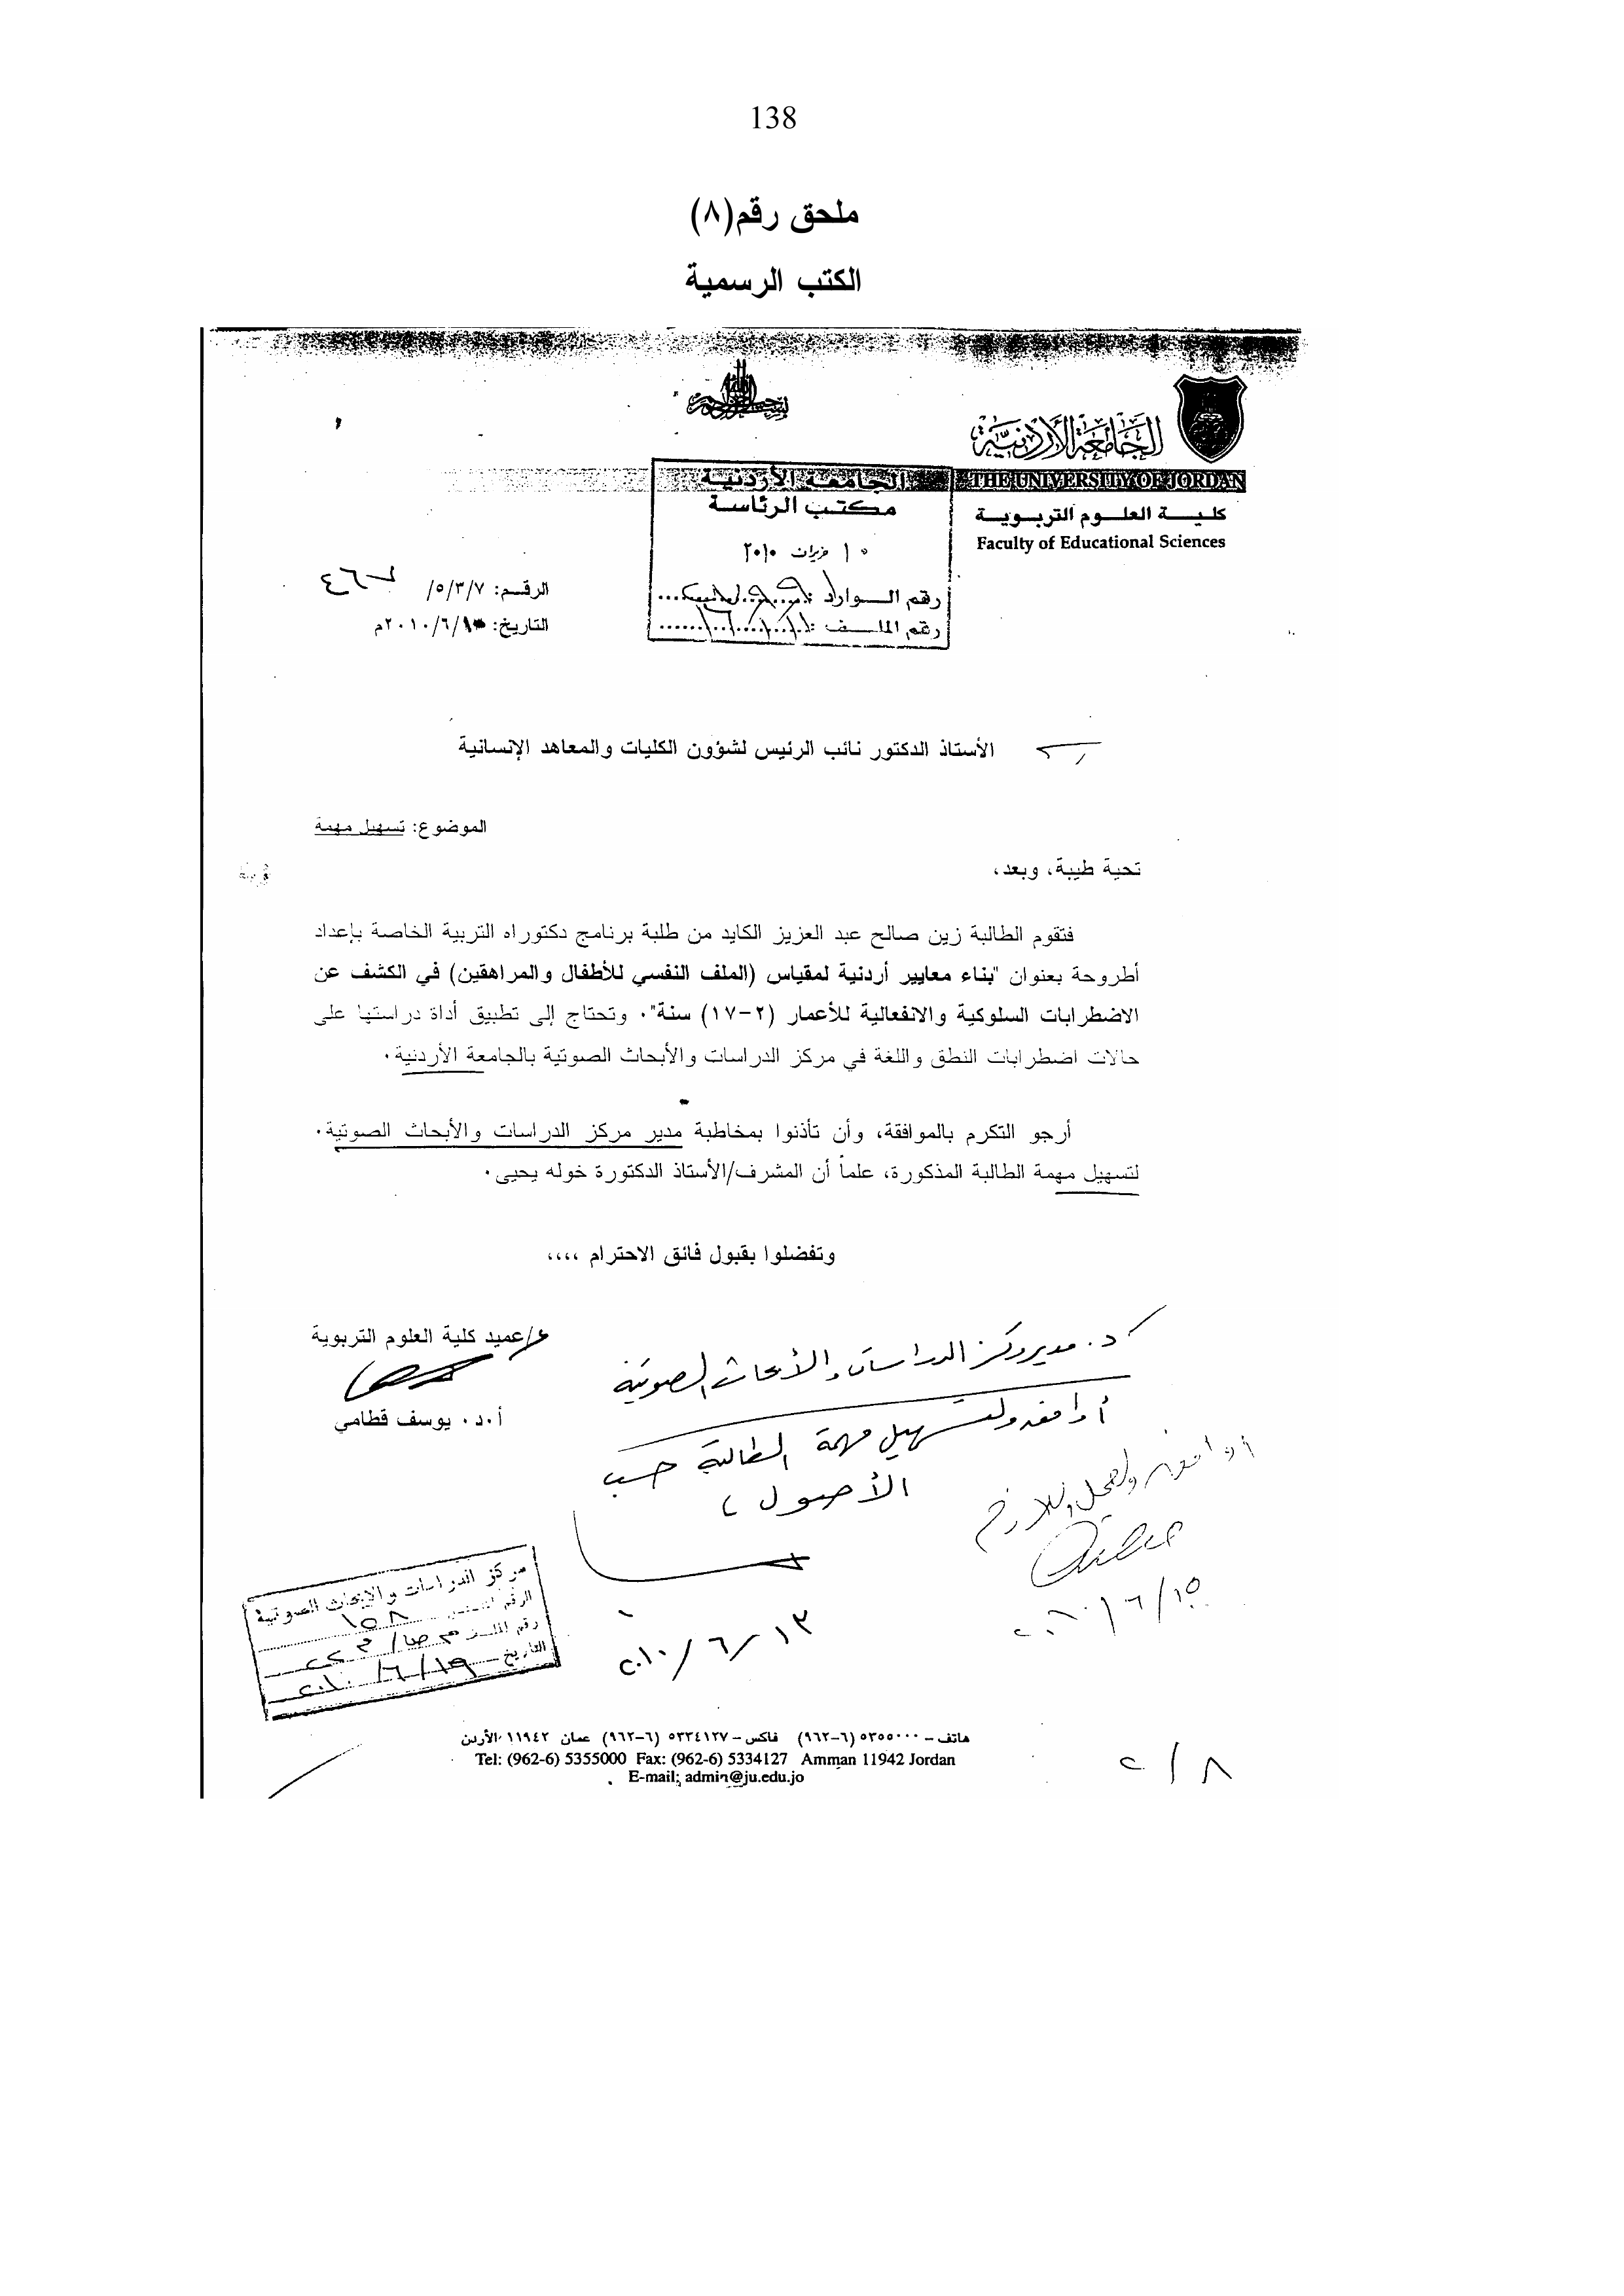 138
ملحق رقم(٨)
الكتب الرسمية
الجامعة الأردنية
THE UNIVERSITY OF JORDAN
كلية العلوم التربوية
Faculty of Educational Sciences
الجامعة الأردنية
مكتب الرئاسة
حزيران ٢٠١٠
رقم الوارد :
رقم الملف :
الرقم: ٥/٣/٧/
التاريخ: ٢٠١٠/٦/١٠م
الأستاذ الدكتور نائب الرئيس لشؤون الكليات والمعاهد الإنسانية
الموضوع: تسهيل مهمة
تحية طيبة، وبعد،
فتقوم الطالبة زين صالح عبد العزيز الكايد من طلبة برنامج دكتوراه التربية الخاصة بإعداد
أطروحة بعنوان "بناء معايير أردنية لمقياس (الملف النفسي للأطفال والمراهقين) في الكشف عن
الاضطرابات السلوكية والانفعالية للأعمار (٢-١٧) سنة". وتحتاج إلى تطبيق أداة دراستها على
حالات اضطرابات النطق واللغة في مركز الدراسات والأبحاث الصوتية بالجامعة الأردنية.
أرجو التكرم بالموافقة، وأن تأذنوا بمخاطبة مدير مركز الدراسات والأبحاث الصوتية.
لتسهيل مهمة الطالبة المذكورة، علماً أن المشرف/الأستاذ الدكتورة خوله يحيى.
وتفضلوا بقبول فائق الاحترام ،،،،
ع/عميد كلية العلوم التربوية
أ.د. يوسف قطامي
د. مدير مركز الدراسات والأبحاث الصوتية
أوافق ولتسهيل مهمة الطالبة حسب
الأصول
٢٠١٠/٦/١٣
أوافق
٢٠١٠/٦/١٥
مركز الدراسات والابحاث الصوتية
الرقم ١٥٨
رقم الملف
التاريخ ٢٠١٠/٦/١٩
هاتف – ٥٣٥٥٠٠٠ (٦-٩٦٢) فاكس – ٥٣٣٤١٢٧ (٦-٩٦٢) عمان ١١٩٤٢ الأردن
Tel: (962-6) 5355000 Fax: (962-6) 5334127 Amman 11942 Jordan
E-mail: admin@ju.edu.jo
٢/٨